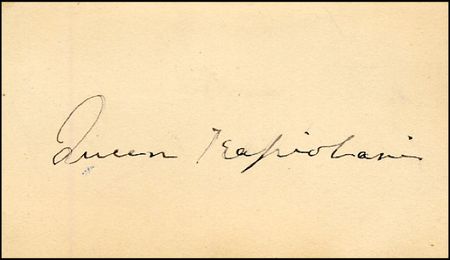 Queen Kapiolani